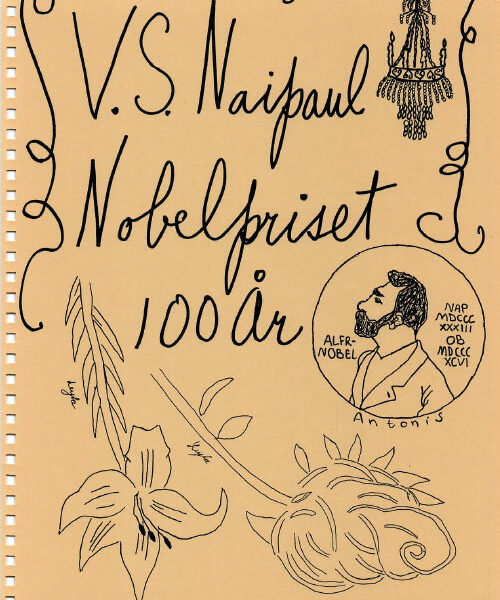 V. S. Naipaul
Nobelpriset
100 År
ALFR-
NOBEL
NAP
MDCCC
XXXIII
OB
MDCCC
XCVI
Antonis